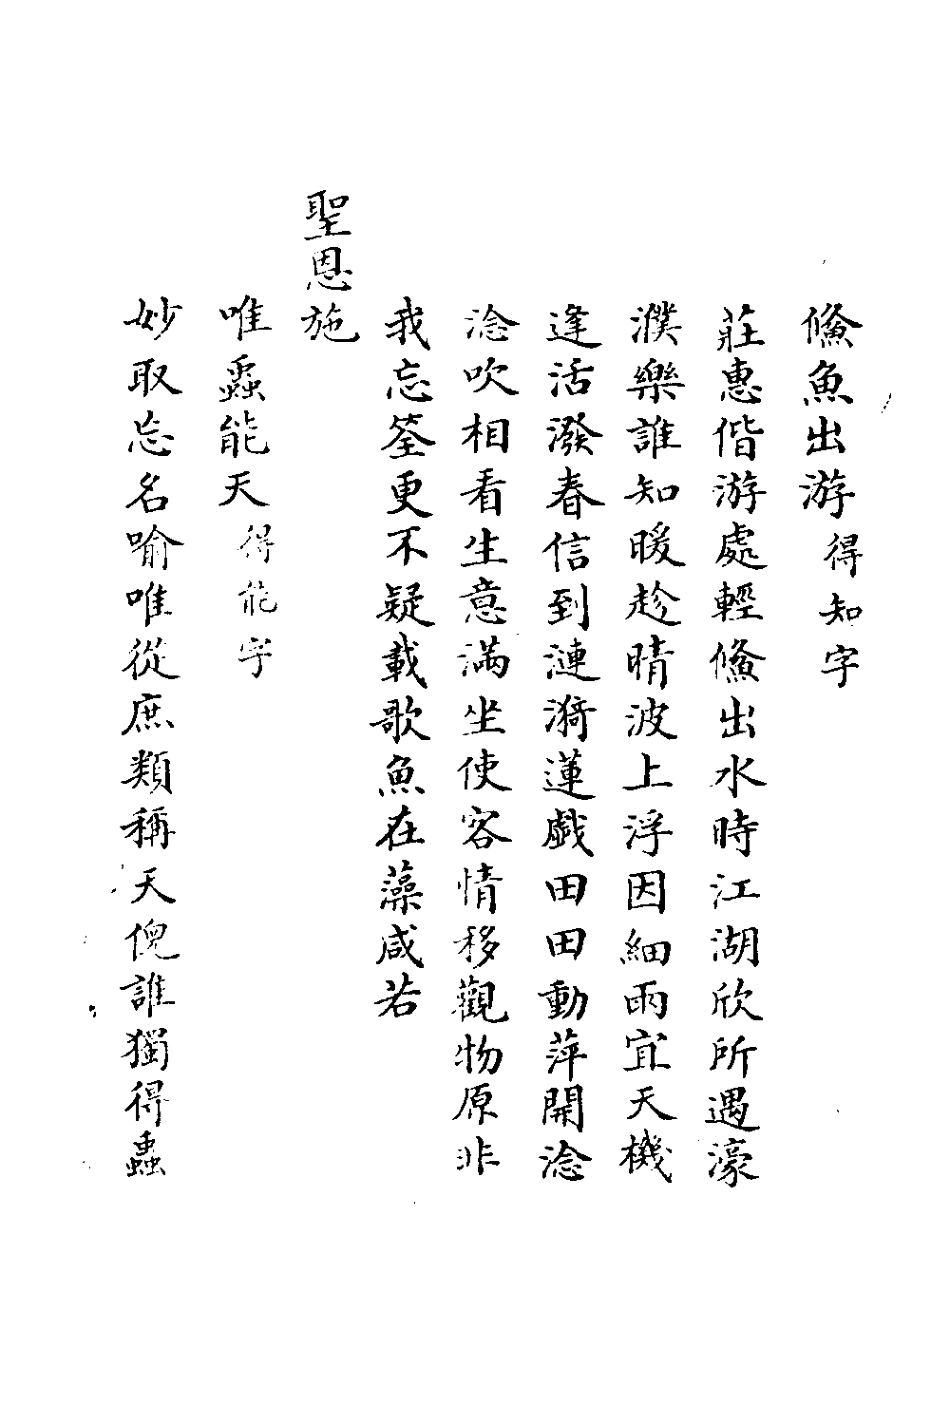 鯈魚出游得知字
莊惠偕游處輕鯈出水時江湖欣所遇濠
濮樂誰知暖趁晴波上浮因細雨宜天機
逢活潑春信到漣漪蓮戲田田動萍開淰
淰吹相看生意滿坐使客情移觀物原非
我忘筌更不疑載歌魚在藻咸若
聖恩施
唯蟲能天得能字
妙取忘名喻唯從庶類稱天倪誰獨得蟲